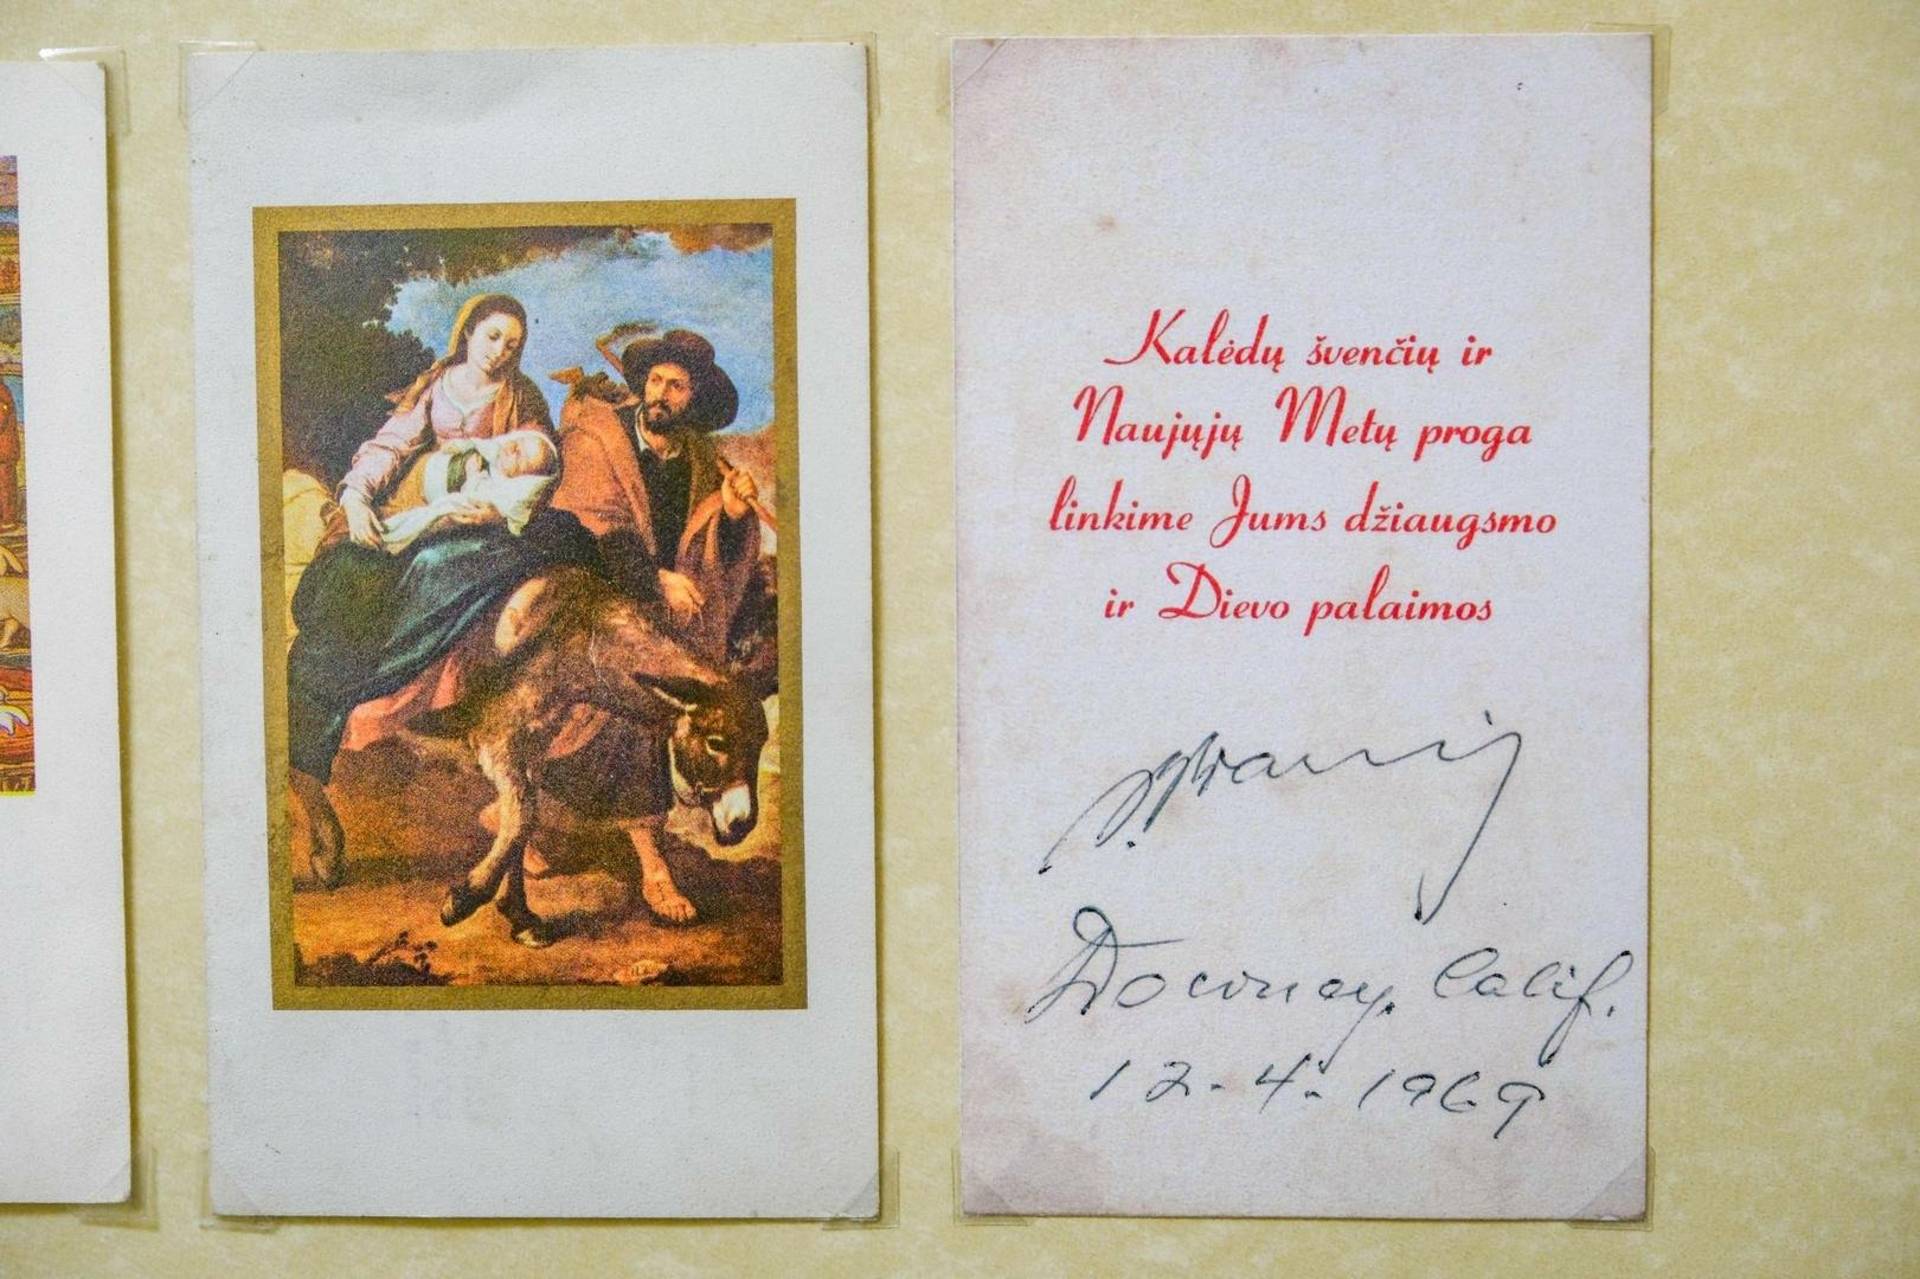 Kalėdų švenčių ir
Naujųjų Metų proga
linkime Jums džiaugsmo
ir Dievo palaimos
Downey, Calif.
12-4-1969